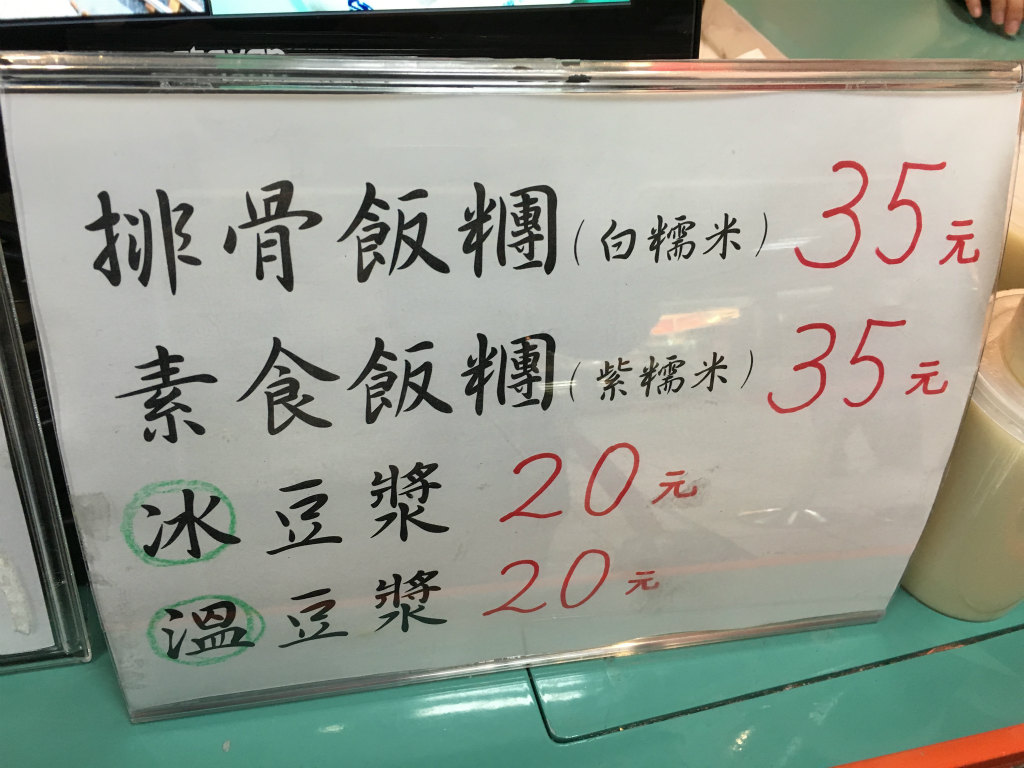 排骨飯糰(白糯米) 35元
素食飯糰(紫糯米) 35元
冰豆漿 20元
溫豆漿 20元